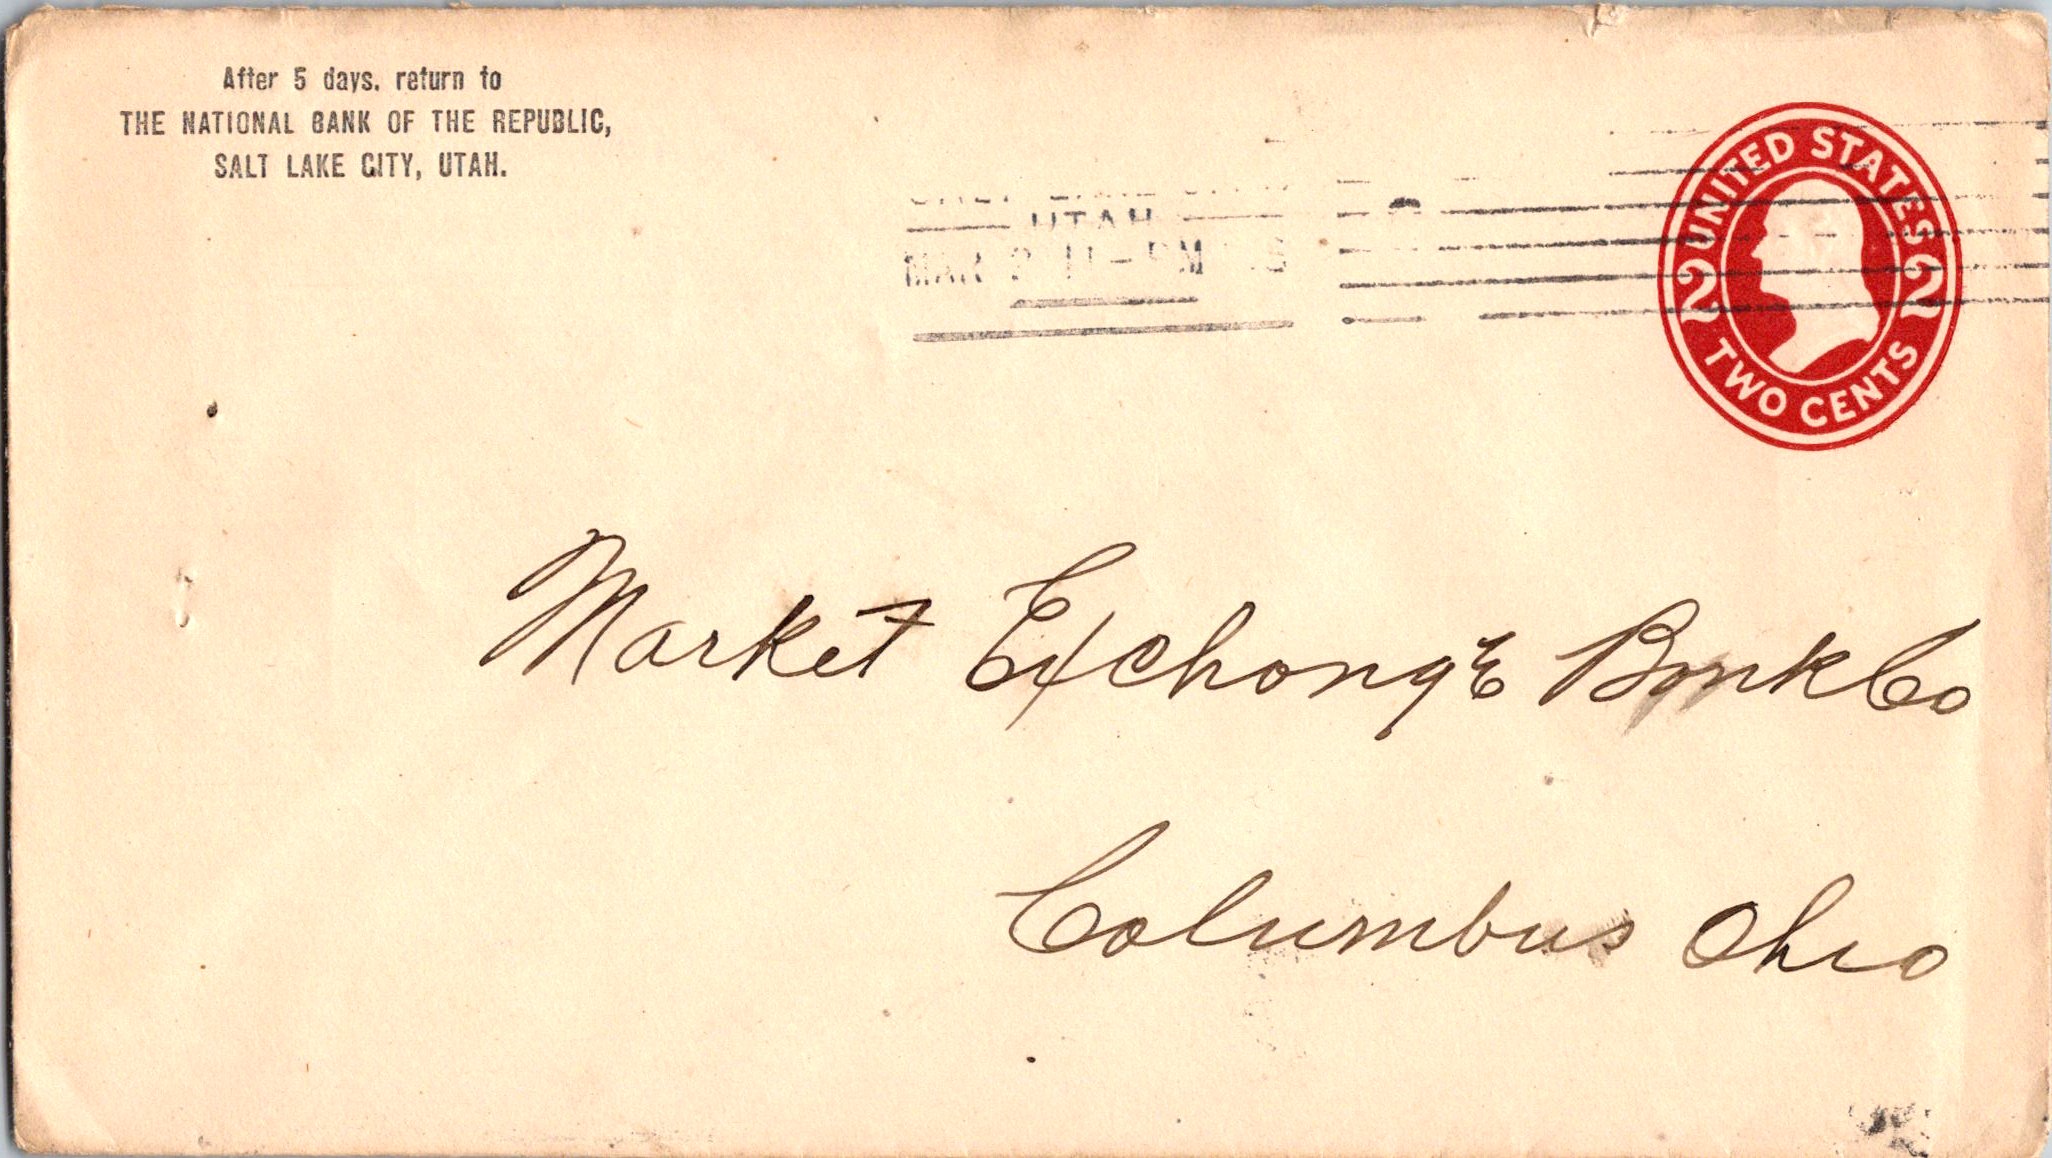 After 5 days, return to
THE NATIONAL BANK OF THE REPUBLIC,
SALT LAKE CITY, UTAH.
UTAH
MAR 11-PM
UNITED STATES
2 2
TWO CENTS
Market Exchange Bank Co
Columbus Ohio